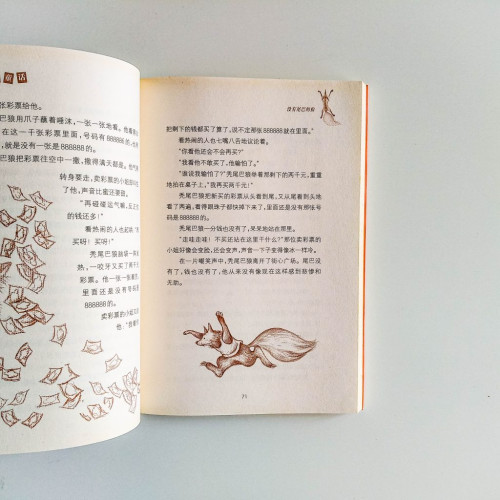 童话
张彩票给他。
巴狼用爪子蘸着唾沫，一张一张地看。他
在这一千张彩票里面，号码有888888的，
，就是没有一张是888888的！
巴狼把彩票往空中一撒，撒得满天都是。他气
转身要走，卖彩票的小姐
了他，声音比蜜还要甜。
“再碰碰运气嘛，反正
的钱还多！”
看热闹的人也起哄：“
买呀！买呀！”
秃尾巴狼脑袋一
热，一咬牙又买了两千
彩票。他一张一张看
里面还是没有号码
888888的。
卖彩票的小姐又
他：“我看你
没有尾巴的狼
把剩下的钱都买了算了，说不定那张888888就在里面。”
看热闹的人也七嘴八舌地议论着。
“你看他还会不会再买？”
“我看他不敢买了，他输怕了。”
“谁说我输怕了！”秃尾巴狼举着那剩下的两千元，重重
地拍在桌子上，“我再买两千元！”
秃尾巴狼把新买的彩票从头看到尾，又从尾看到头地
看了两遍，看得眼珠子都快掉下来了，里面还是没有那张号
码是888888的。
秃尾巴狼一分钱也没有了，呆呆地站在那里。
“走哇走哇！不买还站在这里干什么？”那位卖彩票的
小姐好像会变脸，还会变声，声音一下子变得像冰一样冷。
在一片嘲笑声中，秃尾巴狼离开了街心广场。尾巴没
有了，钱也没有了，他从来没有像现在这样感到悲惨和
无助。
71